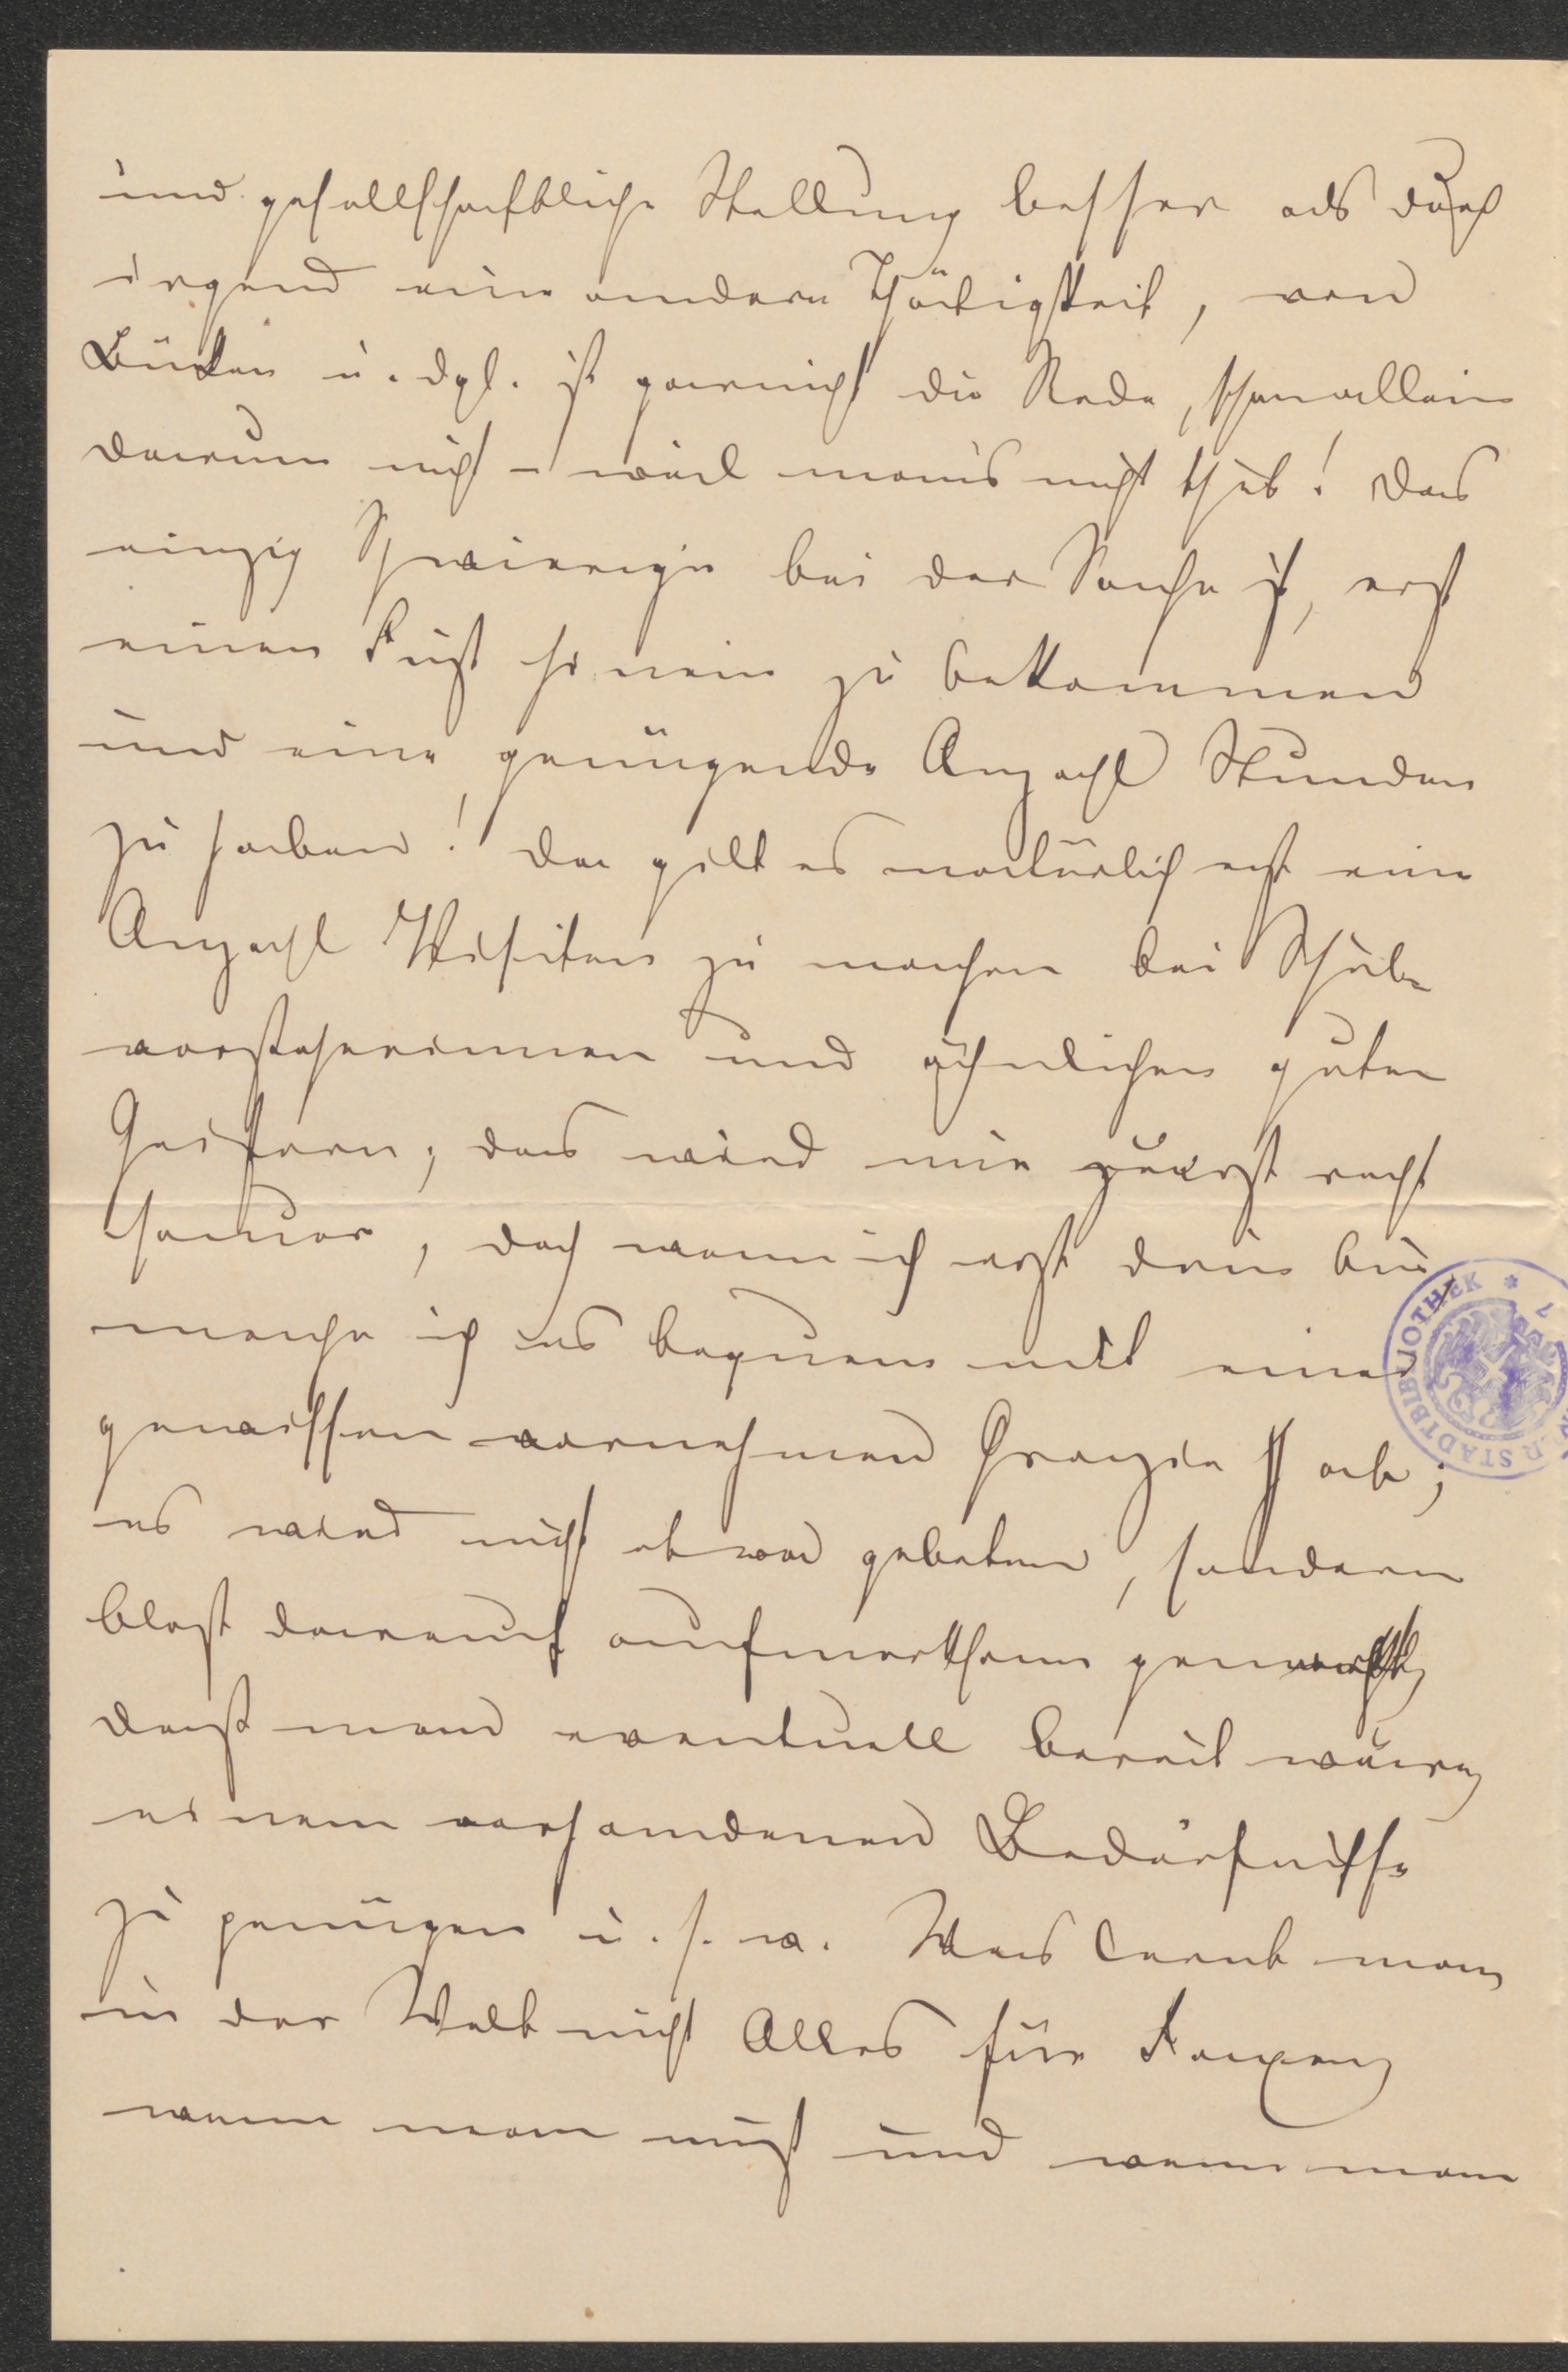 und gesellschaftliche Stellung besser als durch
irgend eine andere Thätigkeit, von
Bücken u. dgl. ist garnicht die Rede, schon allein
darum nicht – weil man's nicht thut! Das
einzig Schwierige bei der Sache ist, erst
einen Fuß hinein zu bekommen
und eine genügende Anzahl Stunden
zu haben! Da gilt es natürlich erst eine
Anzahl Visiten zu machen bei Schul-
vorsteherinnen und ähnlichen guten
Geistern; das wird mir zuerst recht
sauer, doch wenn ich erst drin bin
mache ich es bequem mit einer
gewissen vornehmen Grazie ab;
es wird nicht etwa gebeten, sondern
bloß darauf aufmerksam gemacht,
daß man eventuell bereit wäre,
einem vorhandenen Bedürfnisse
zu genügen u. s. w. Was lernt man
in der Welt nicht Alles für Faxen,
wenn man muß und wenn man
STADTBIBLIOTHEK